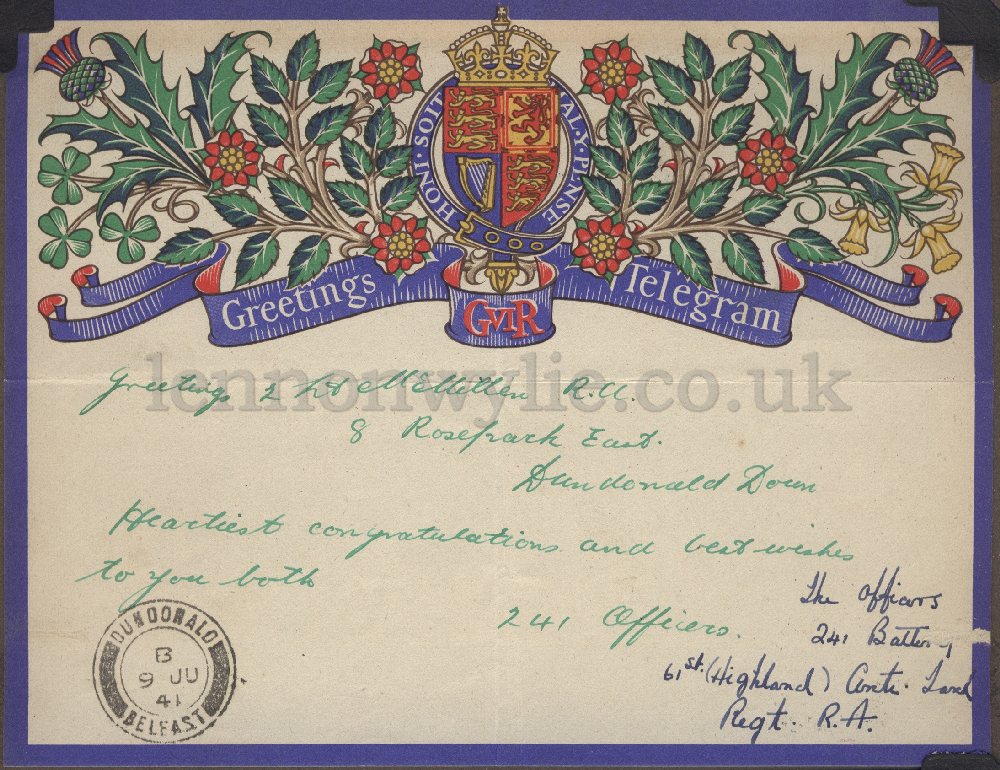 HONI · SOIT
AL · Y · PENSE
Greetings
Telegram
GVIR
lennonwylie.co.uk
Greetings 2 Lt
8 Rosepark East.
Dundonald Down
Heartiest congratulations and best wishes
to you both
241 Officers.
The Officers
241 Battery
61st. (Highland) Anti. Tank
Regt. R.A.
DUNDONALD
B
9 JU
41
BELFAST